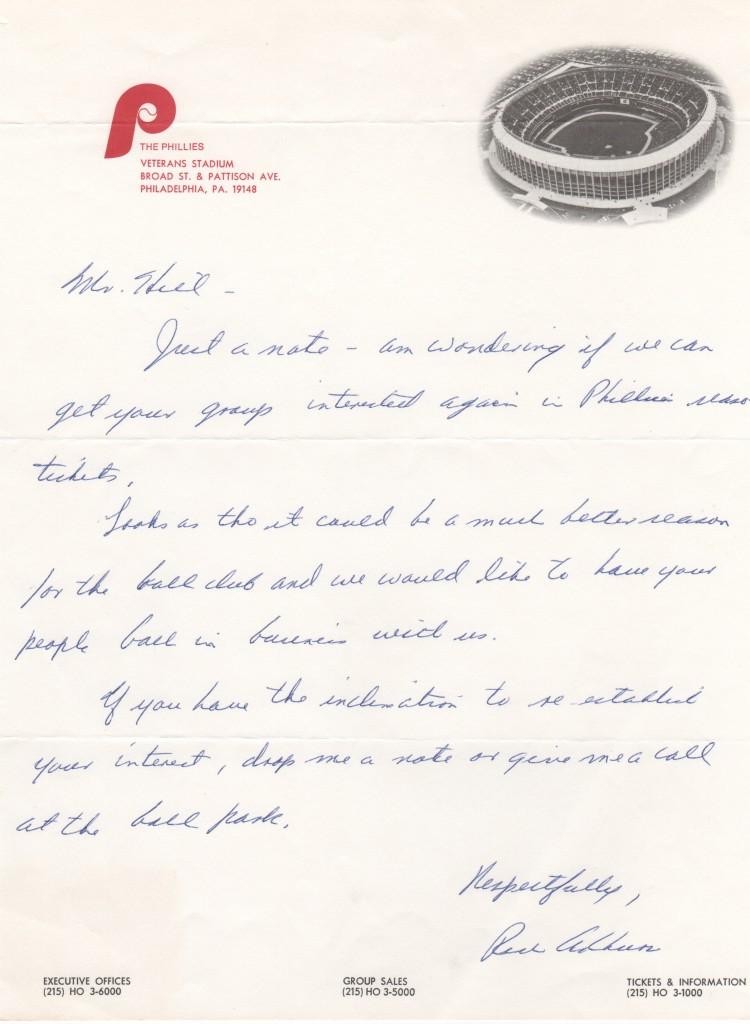 P
THE PHILLIES
VETERANS STADIUM
BROAD ST. & PATTISON AVE.
PHILADELPHIA, PA. 19148
Mr. Hill -
Just a note - am wondering if we can
get your group interested again in Phillies seaso
tickets.
Looks as tho it could be a much better season
for the ball club and we would like to have your
people back in business with us.
If you have the inclination to re-establish
your interest, drop me a note or give me a call
at the ball park.
Respectfully,
EXECUTIVE OFFICES GROUP SALES TICKETS & INFORMATION
(215) HO 3-6000 (215) HO 3-5000 (215) HO 3-1000